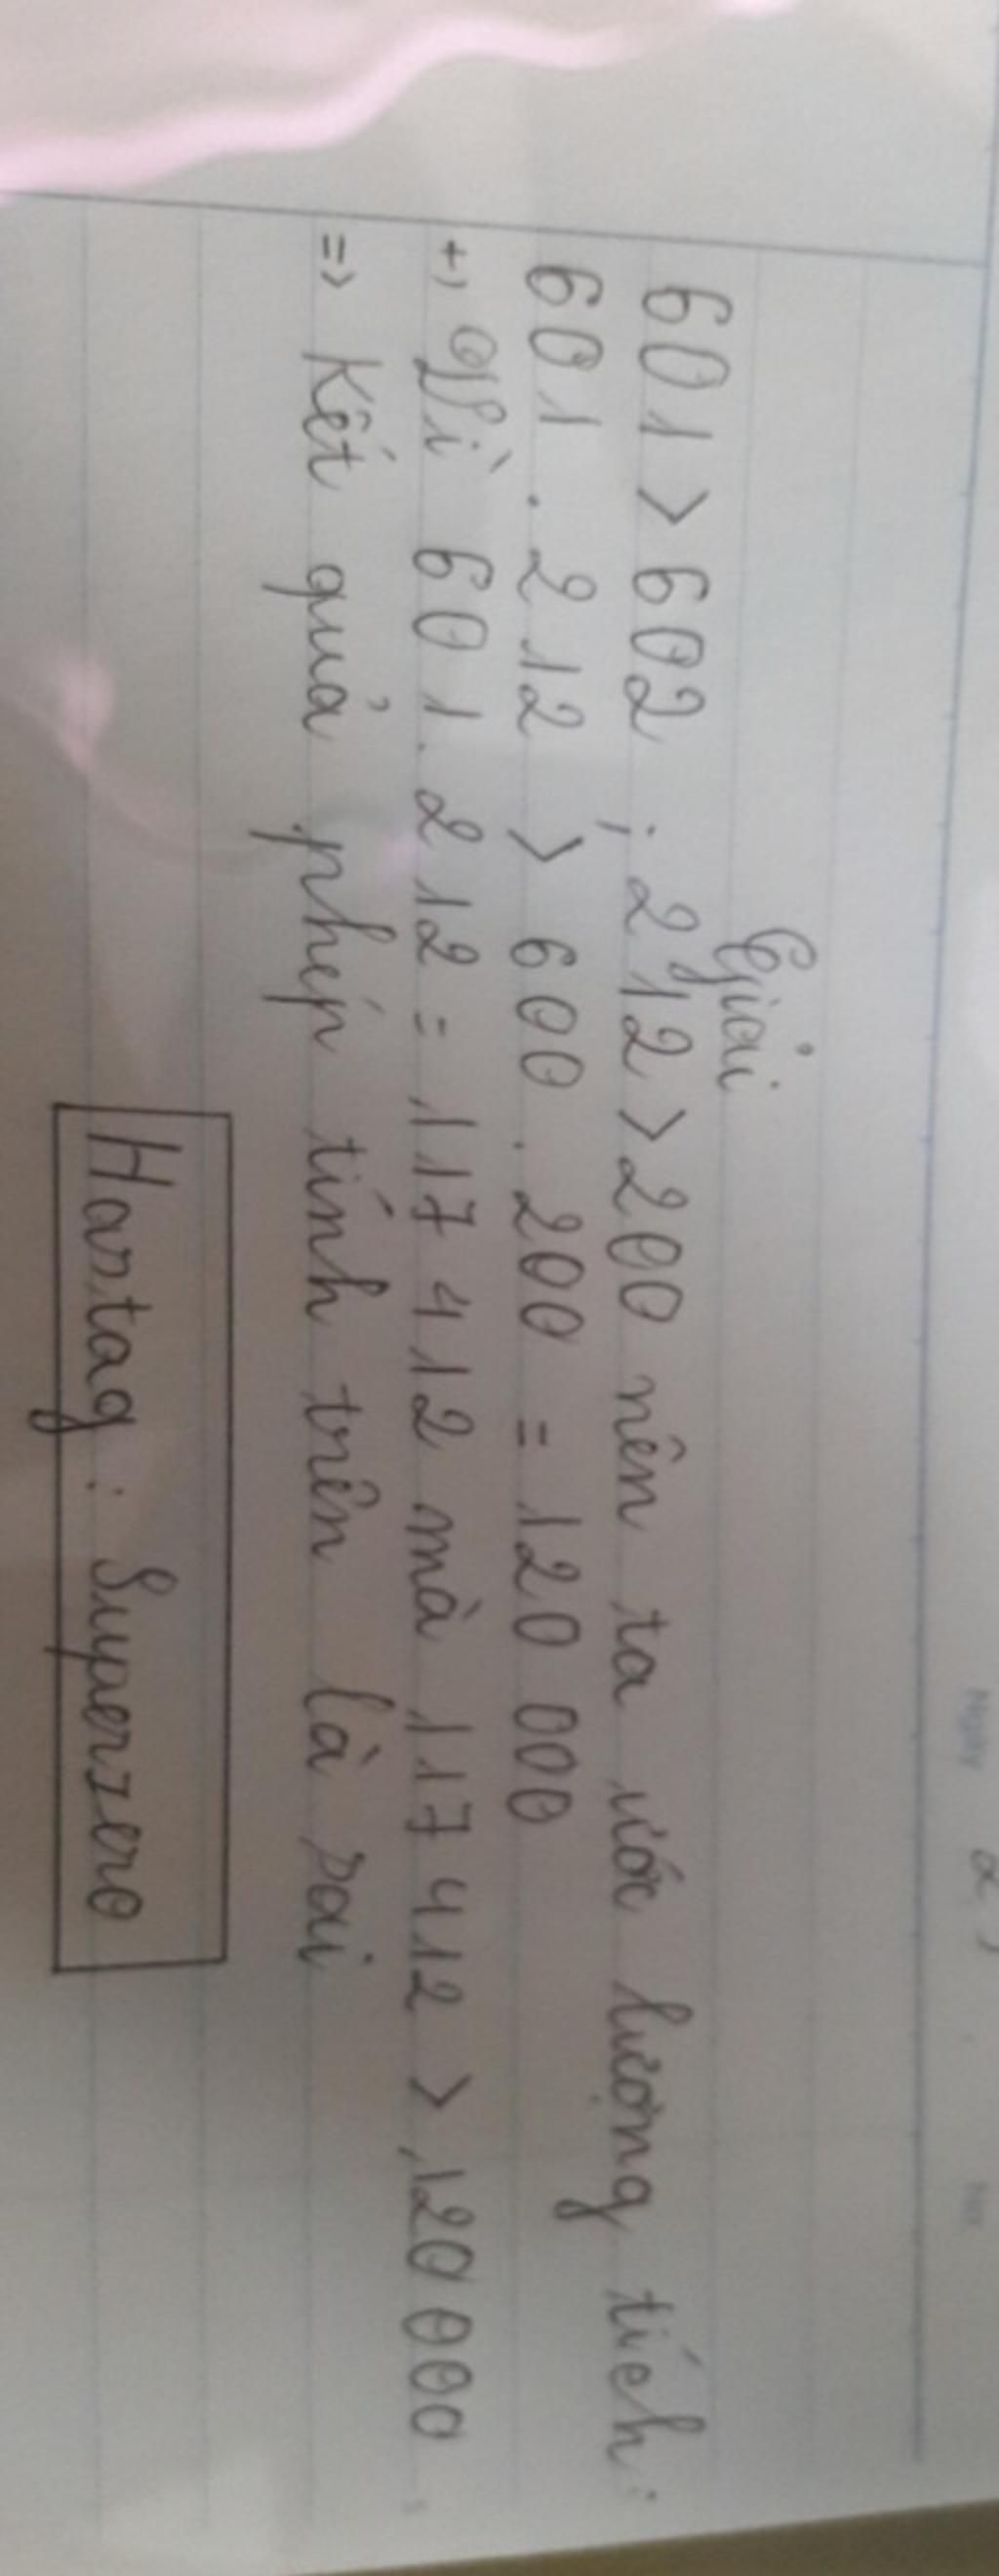 Giải
601 > 602 ; 212 > 200 nên ta ước lượng tích :
601 . 212 > 600 . 200 = 120 000
+, Vì 601 . 212 = 117 412 mà 117 412 > 120 000
=> Kết quả phép tính trên là sai
Hastag : Superzero
Ngày
No.